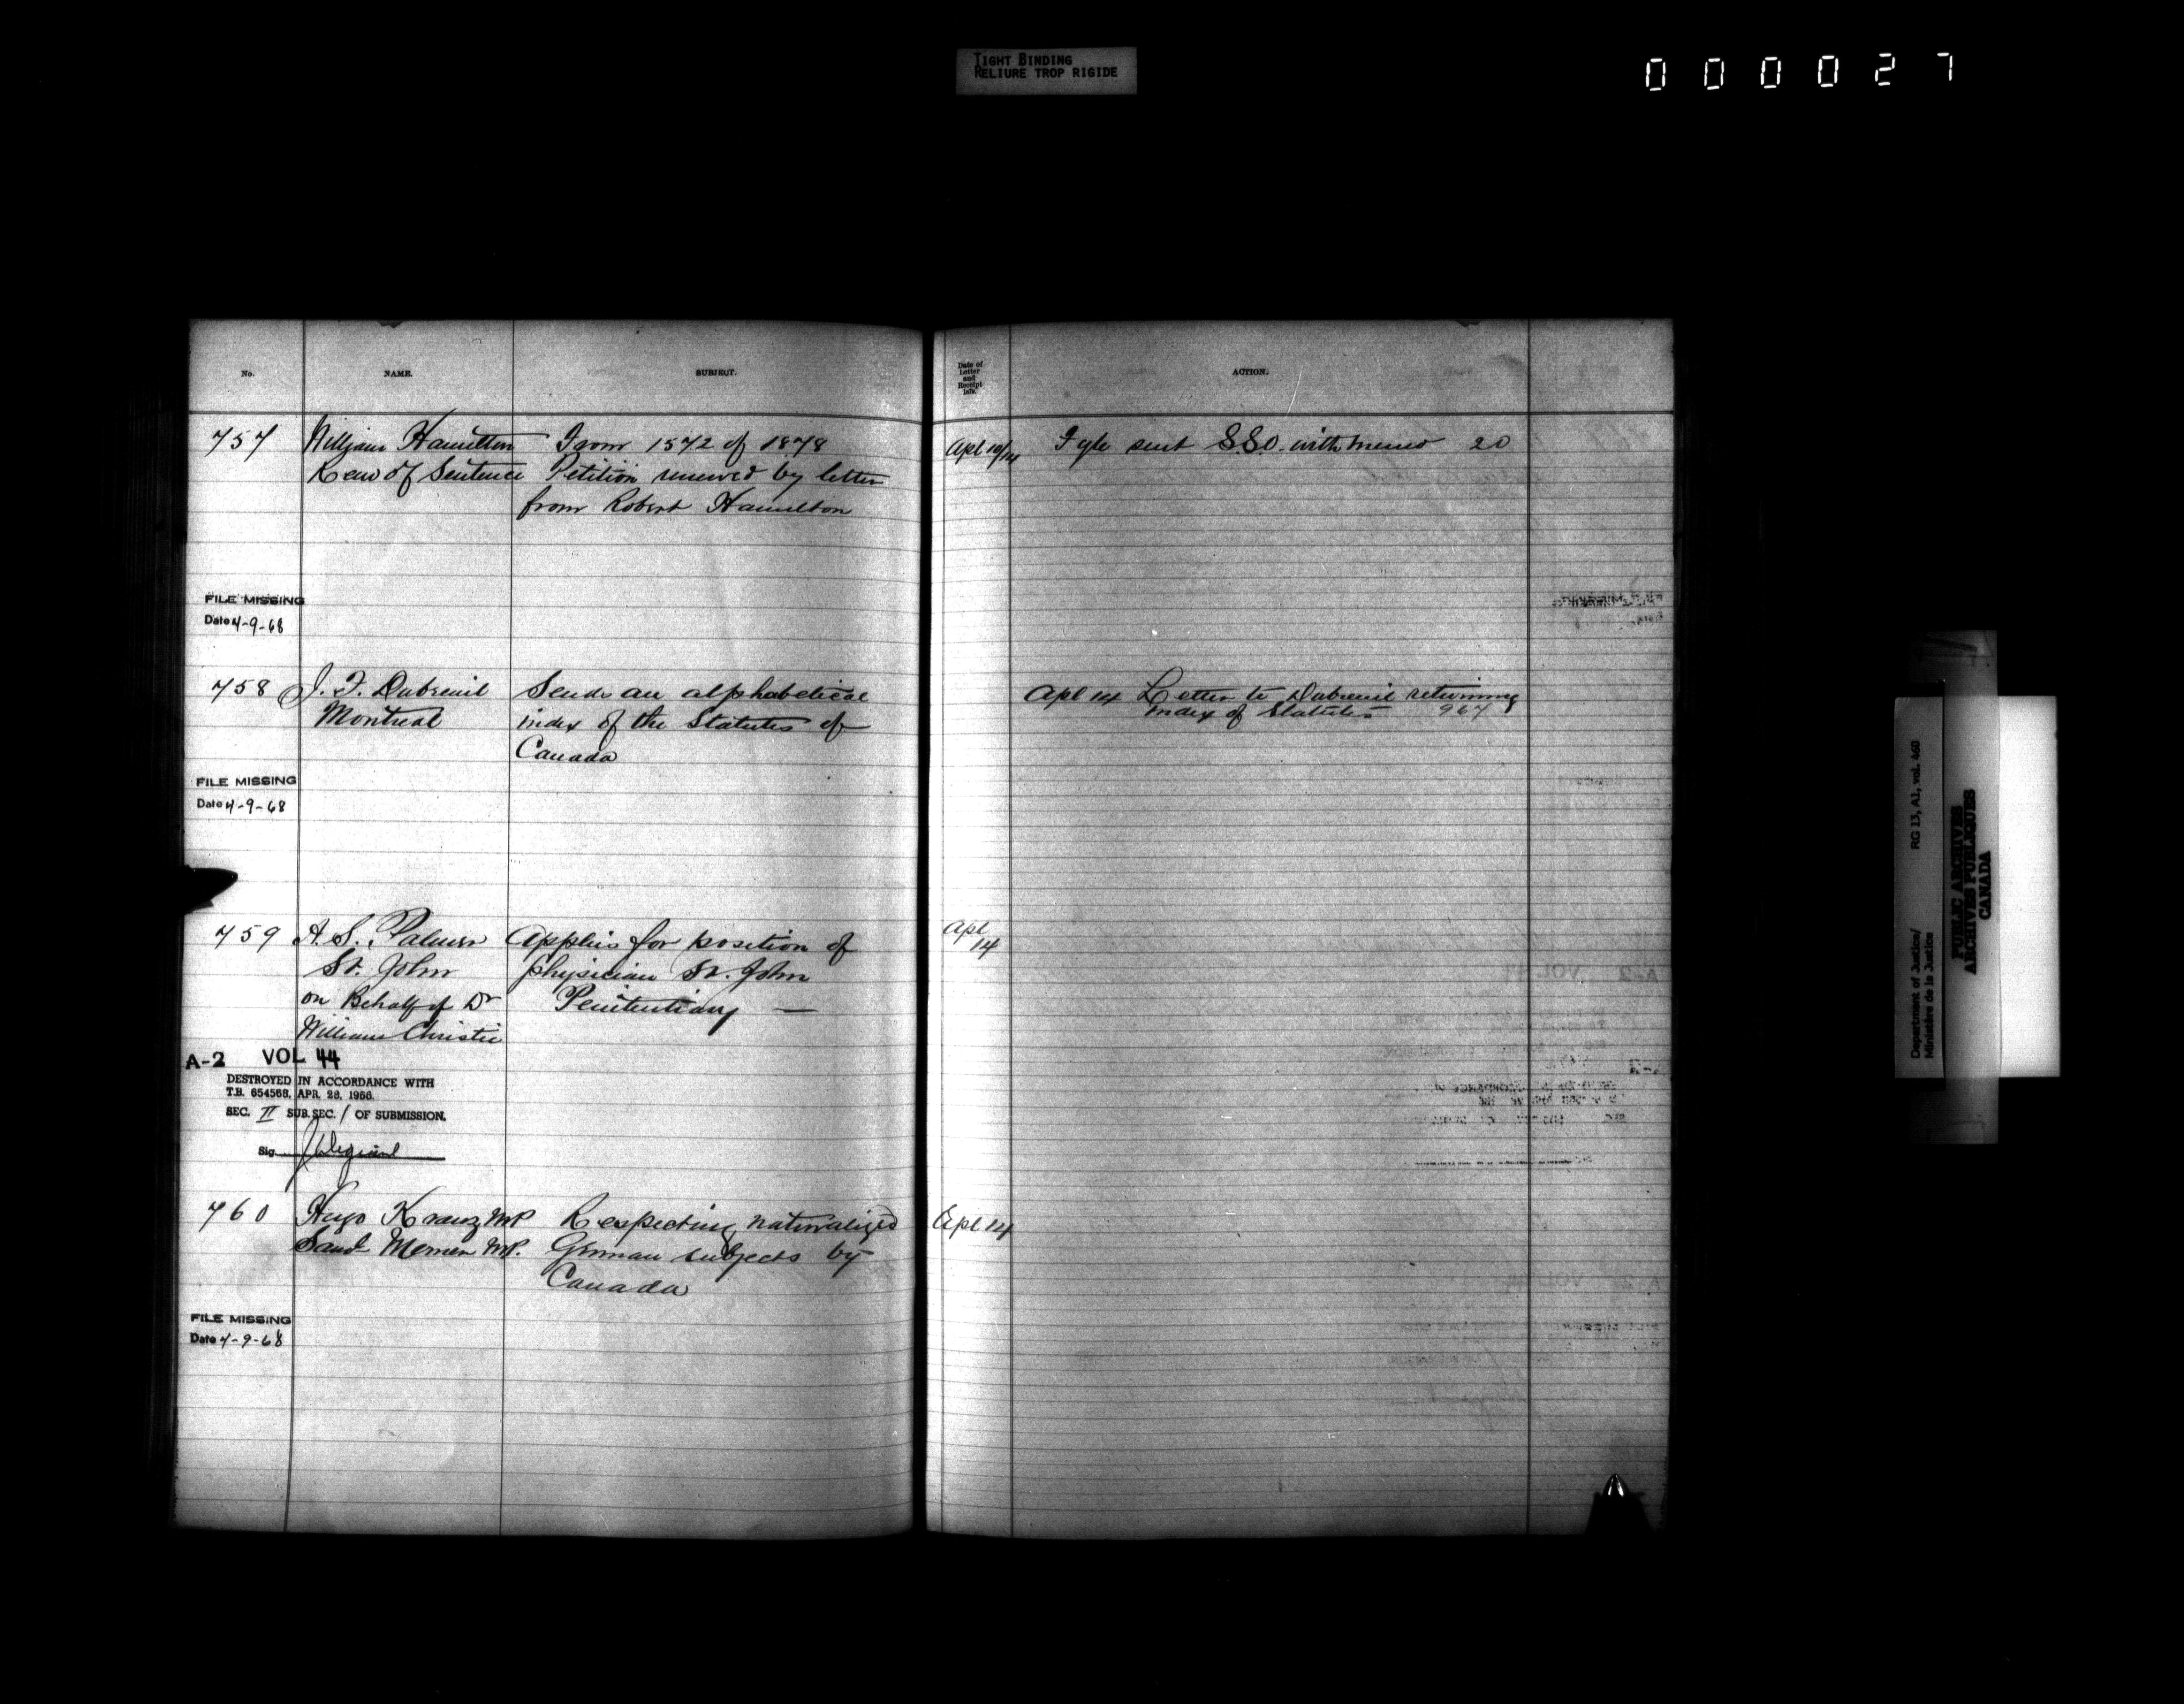 TIGHT BINDING
RELIURE TROP RIGIDE
000027
No. NAME. SUBJECT.
757 William Hamilton From 1572 of 1878
Rem of Sentence Petition renewed by letter
from Robert Hamilton
FILE MISSING
Date 4-9-68
758 J. F. Dubreuil Sends an alphabetical
Montreal index of the Statutes of
Canada
FILE MISSING
Date 4-9-68
759 A. S. Palmer Applies for position of
St. John physician St. John
on Behalf of Dr Penitentiary —
William Christie
A-2 VOL 44
DESTROYED IN ACCORDANCE WITH
T.B. 654568, APR. 28, 1966.
SEC. II SUB. SEC. 1 OF SUBMISSION.
Sig.
760 Hugo Kranz MP Respecting naturalized
Saml Merner MP. German subjects by
Canada
FILE MISSING
Date 4-9-68
Date of
Letter
and
Receipt
ACTION.
Apl 10/14 Fyle sent S.S.O. with memo 20
Apl 14 Letter to Dubreuil returning
index of Statutes 967
Apl
14
Apl 14
Department of Justice/ RG 13, A1, vol. 460
Ministère de la Justice
PUBLIC ARCHIVES
ARCHIVES PUBLIQUES
CANADA